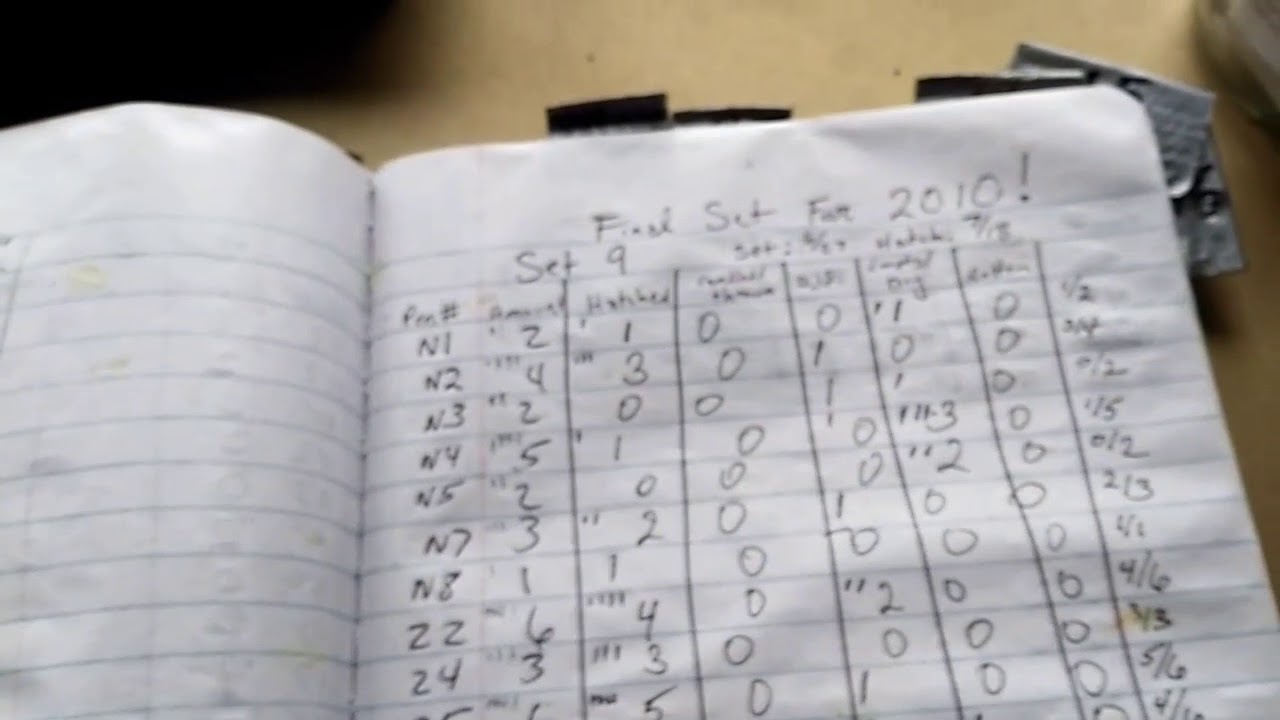 Final Set For 2010!
Set 9 Set: Hatch: 7/18
Pen# Amount Hatched
N1 " 2 ' 1 0 0 '1 0 1/2
N2 '''' 4 ''' 3 0 1 0 0 3/4
N3 '' 2 0 0 1 ' 0 0/2
N4 5 ' 1 0 ' 0 '''3 0 1/5
N5 '' 2 0 0 0 ''2 0 0/2
N7 3 '' 2 0 1 0 0 2/3
N8 ' 1 1 0 0 0 0 1/1
22 6 '''' 4 0 ''2 0 0 4/6
24 ''' 3 ''' 3 0 0 0 0 3/3
5 0 1 0 0 5/6